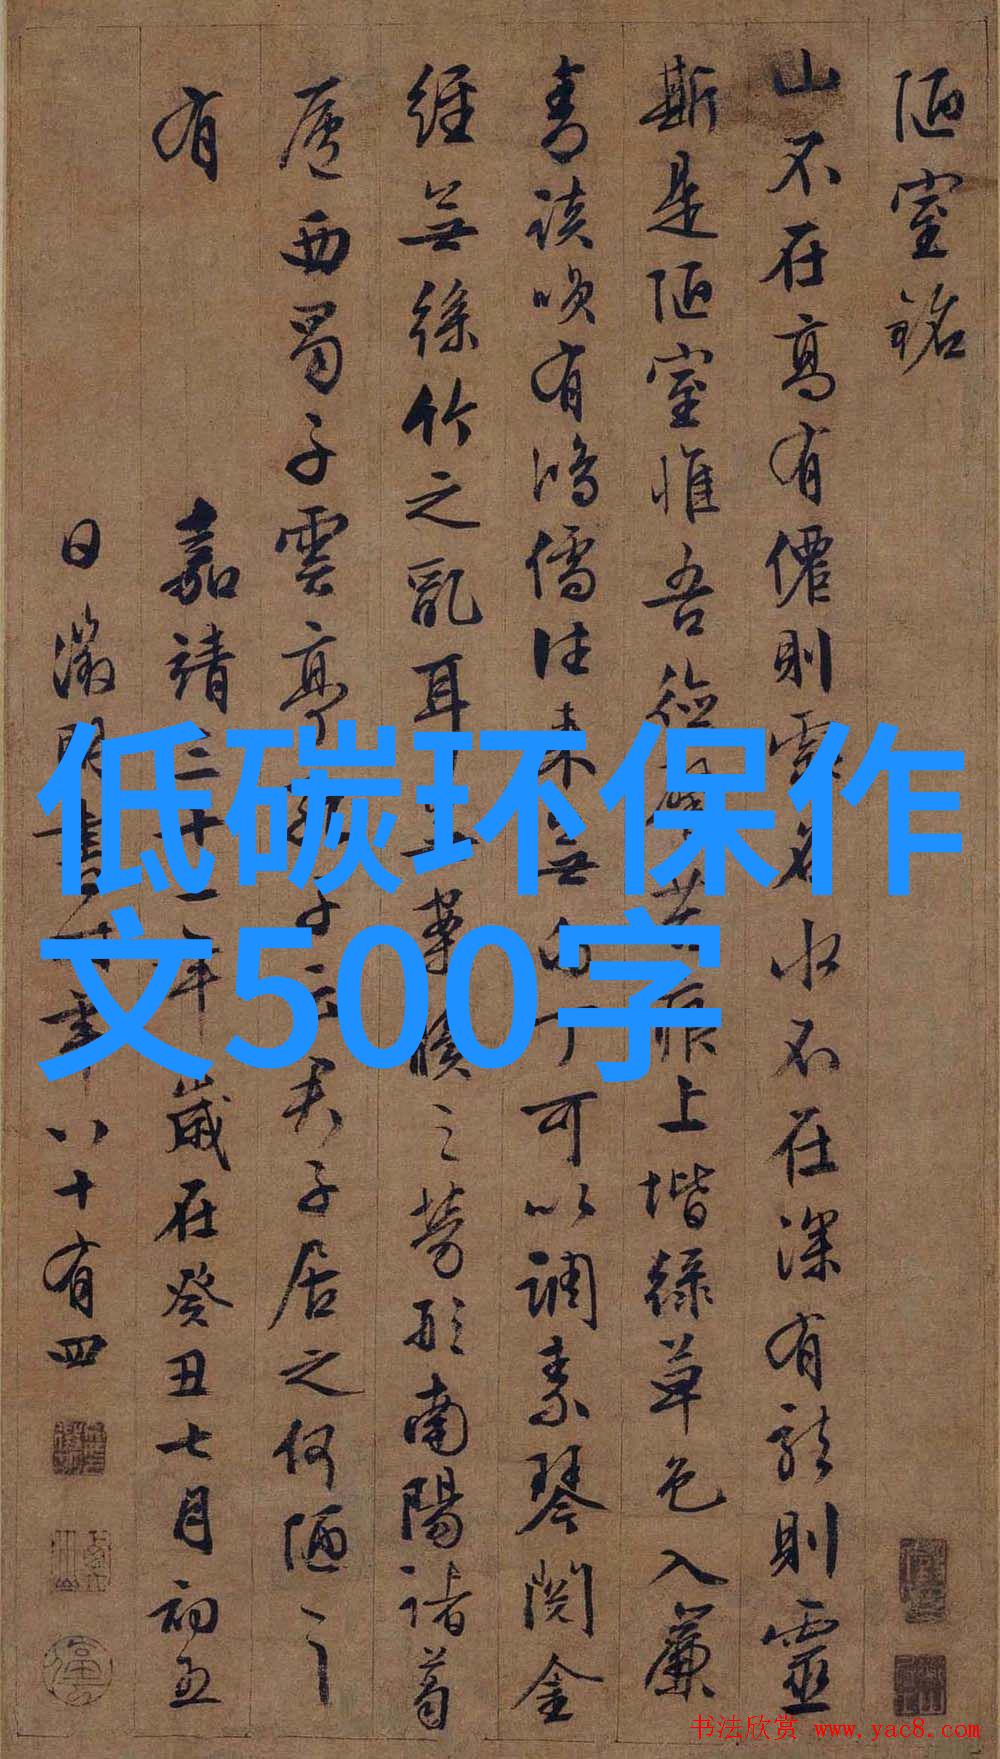 陋室銘
山不在高有僊則名水不在深有龍則靈
斯是陋室惟吾德馨苔痕上堦緑草色入簾
青談笑有鴻儒往来無白丁可以調素琴閱金
經無絲竹之亂耳無案牘之勞形南陽諸葛
廬西蜀子雲亭孔子云君子居之何陋之
有
嘉靖三十二年歲在癸丑七月初五
日徵明書時年八十有四
低碳环保作
文500字
书法欣赏 www.yac8.com